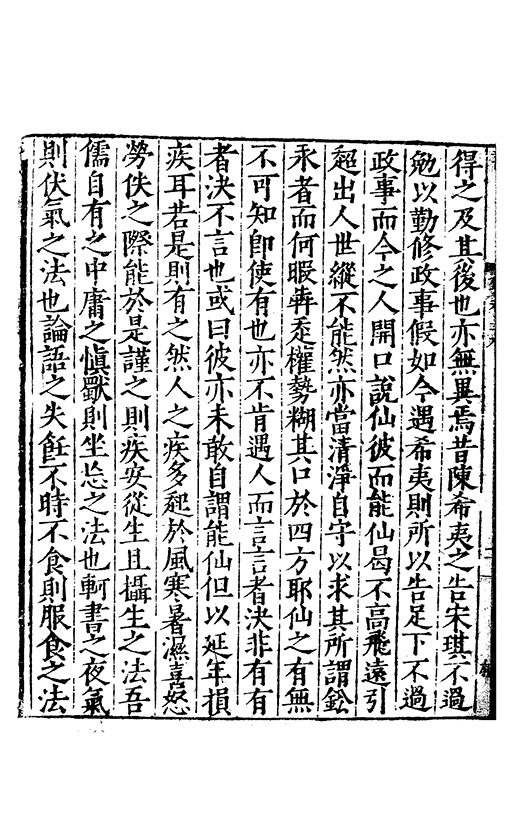 得之及其後也亦無異焉昔陳希夷之告宋琪不過
勉以勤修政事假如今遇希夷則所以告足下不過
政事而今之人開口說仙彼而能仙曷不高飛遠引
超出人世縱不能然亦當清淨自守以求其所謂鈆
汞者而何暇犇走權勢糊其口於四方耶仙之有無
不可知卽使有也亦不肯遇人而言言者決非有有
者決不言也或曰彼亦未敢自謂能仙但以延年損
疾耳若是則有之然人之疾多起於風寒暑濕喜怒
勞佚之際能於是謹之則疾安從生且攝生之法吾
儒自有之中庸之愼獨則坐忘之法也軻書之夜氣
則伏氣之法也論語之失飪不時不食則服食之法